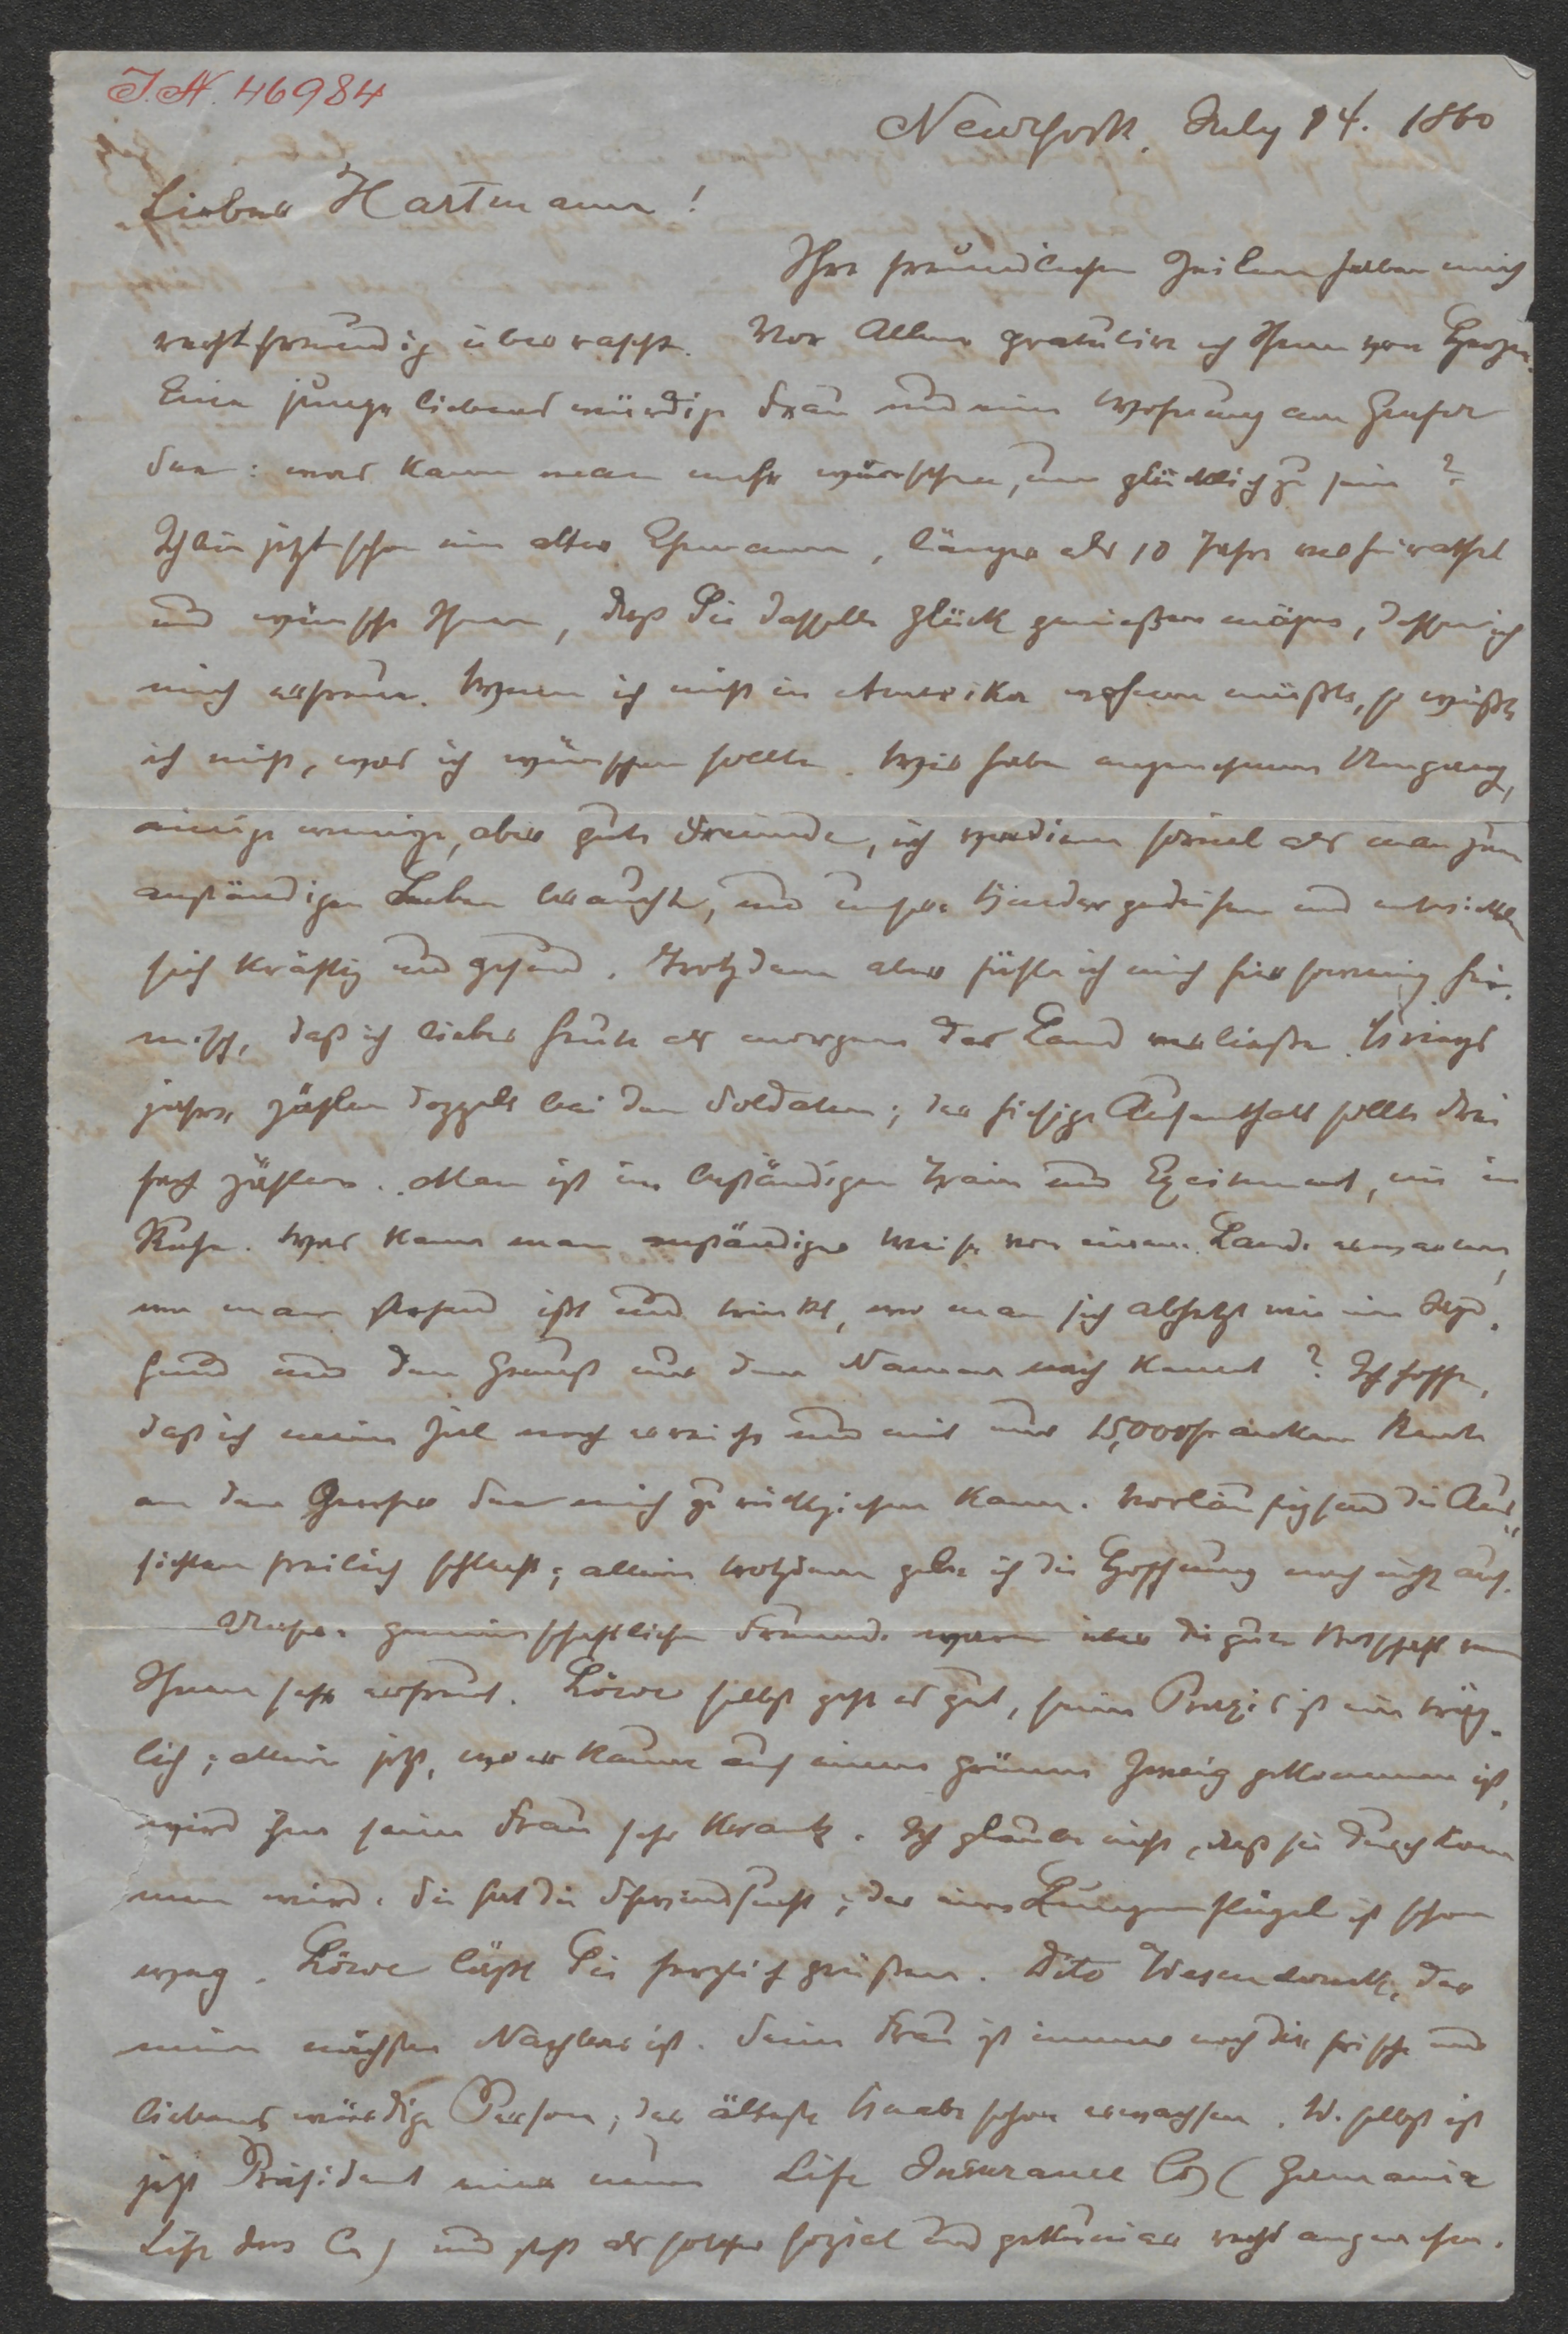 I.N. 46984
NewYork, July 14. 1860
Lieber Hartmann!
Ihre freundlichen Zeilen haben mich
recht freudig überrascht. Vor Allem gratulire ich Ihnen von Herzen.
Eine junge liebenswürdige Frau und eine Wohnung am Genfer
See: was kann man mehr wünschen, um glücklich zu sein?
Ich bin jetzt schon ein alter Ehemann, länger als 10 Jahre verheirathet
und wünsche Ihnen, daß Sie dasselbe Glück genießen mögen, dessen ich
mich erfreue. Wenn ich nicht in Amerika wohnen müßte, so wüßte
ich nicht, was ich wünschen sollte. Wir haben angenehmen Umgang,
einige wenige, aber gute Freunde, ich verdiene soviel als man zum
anständigen Leben braucht, und unsere Kinder gedeihen und entwickeln
sich kräftig und gesund. Trotzdem aber fühle ich mich hier so wenig hei-
misch, daß ich lieber heute als morgen das Land verließe. Kriegs
jahre zählen doppelt bei den Soldaten; der hiesige Aufenthalt sollte drei
fach zählen. Man ist in beständigem Train und Exitement, nie in
Ruhe. Was kann man anständiger Weise von einem Lande erwarten,
wo man stehend ißt und trinkt, wo man sich abhetzt wie ein Jagd-
hund und den Genuß nur dem Namen nach kennt? Ich hoffe,
daß ich mein Ziel noch erreiche und mit nur 15,000 Franken Rente
an den Genfer See mich zurückziehen kann. Vorläufig sind die Aus-
sichten freilich schlecht; allein trotzdem gebe ich die Hoffnung noch nicht auf.
Unsere gemeinschaftlichen Freunde waren über die gute Botschaft von
Ihnen sehr erfreut. Löwe selbst geht es gut, seine Praxis ist einträg-
lich; allein jetzt, wo er kaum auf einen grünen Zweig gekommen ist,
wird ihm seine Frau sehr krank. Ich glaube nicht, daß sie durchkom
men wird. Sie hat die Schwindsucht; der eine Lungenflügel ist schon
weg. Löwe läßt Sie herzlich grüßen. Dito Wesendonck, der
mein nächster Nachbar ist. Seine Frau ist immer noch die frische und
liebenswürdige Person, der älteste Knabe schon erwachsen. W. selbst ist
jetzt Präsident einer neuen Life Insurance Co (Germania
Life Ins Co) und steht als solcher sozial und pekuniär recht angesehen.